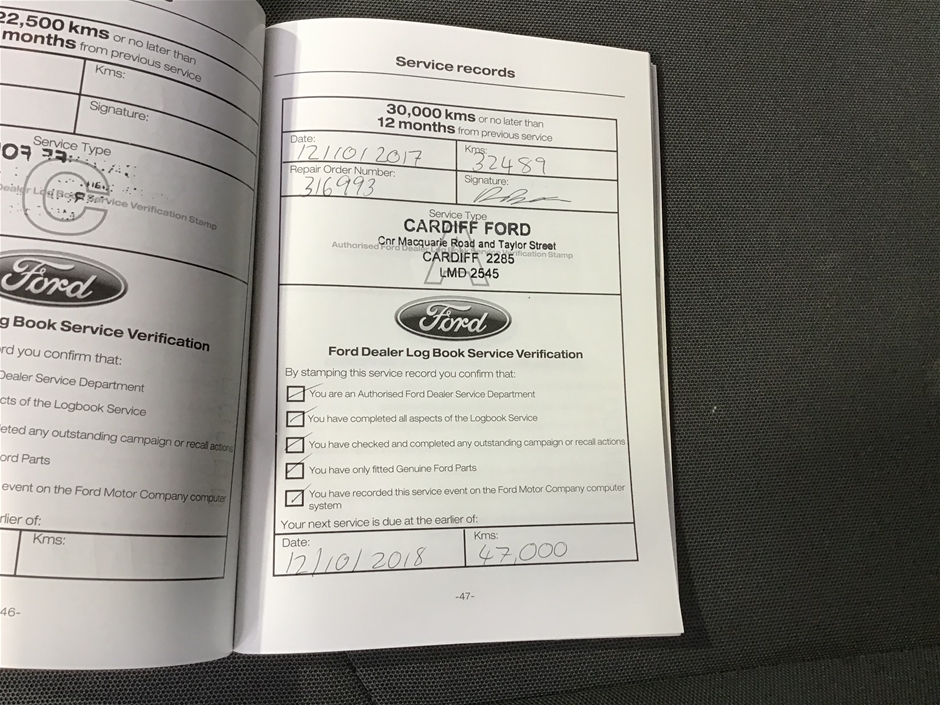 22,500 kms or no later than
months from previous service
Kms:
Signature:
Service Type
C
Service Verification Stamp
Ford
g Book Service Verification
rd you confirm that:
Dealer Service Department
cts of the Logbook Service
eted any outstanding campaign or recall actions
ord Parts
event on the Ford Motor Company computer
rlier of:
Kms:
46-
Service records
30,000 kms or no later than
12 months from previous service
Date:
12/10/2017
Kms:
32489
Repair Order Number:
316993
Signature:
Service Type
CARDIFF FORD
Cnr Macquarie Road and Taylor Street
Authorised Ford Dealer Log Book Service Verification Stamp
A
CARDIFF 2285
LMD 2545
Ford
Ford Dealer Log Book Service Verification
By stamping this service record you confirm that:
You are an Authorised Ford Dealer Service Department
You have completed all aspects of the Logbook Service
You have checked and completed any outstanding campaign or recall actions
You have only fitted Genuine Ford Parts
You have recorded this service event on the Ford Motor Company computer
system
Your next service is due at the earlier of:
Date:
12/10/2018
Kms:
47,000
-47-